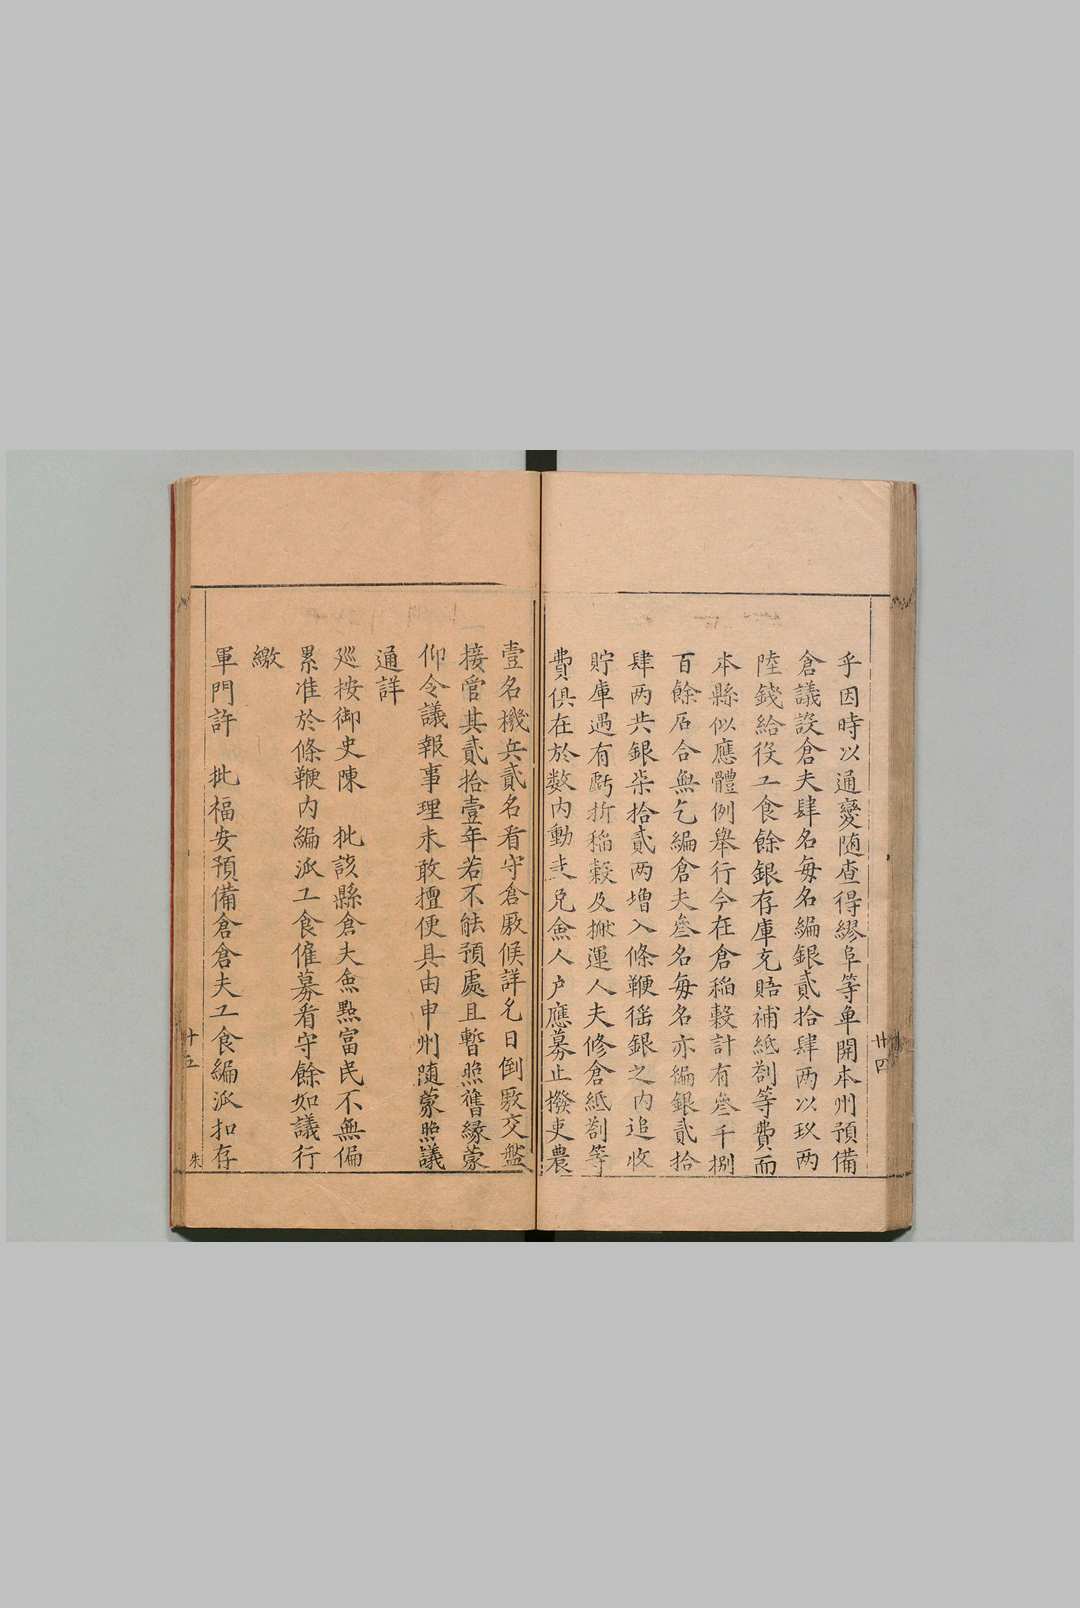 乎因時以通變随查得繆阜等单開本州預備
倉議設倉夫肆名每名編銀貳拾肆两以玖两
陸錢給役工食餘銀存庫充賠補紙劄等費而
本縣似應體例舉行今在倉稲穀計有叄千捌
百餘石合無乞編倉夫叄名每名亦編銀貳拾
肆两共銀柒拾貳两增入條鞭徭銀之内追收
貯庫遇有虧折稲穀及搬運人夫修倉紙劄等
費俱在於数内動支免僉人户應募止撥吏農
廿四
壹名機兵貳名看守倉厫候詳允日倒厫交盤
接管其貳拾壹年若不能預處且暫照舊縁蒙
仰令議報事理未敢擅便具由申州随蒙照議
通詳
廵按御史陳 批該縣倉夫僉㸃富民不無偏
累准於條鞭内編派工食僱募看守餘如議行
繳
軍門許 批福安預備倉倉夫工食編派扣存
十五
朱